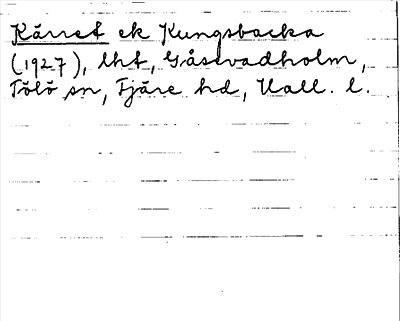 Kärret ek Kungsbacka
(1927), lht, Gåsevadholm,
Tölö sn, Fjäre hd, Hall. l.